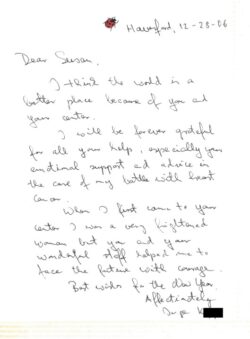 Haverford, 12-28-06
Dear Susan,
I think the world is a
better place because of you and
your center.
I will be forever grateful
for all your help, especially your
emotional support and advice in
the case of my battle with breast
cancer.
When I first came to your
center I was a very frightened
woman but you and your
wonderful staff helped me to
face the future with courage.
Best wishes for the New Year.
Affectionately